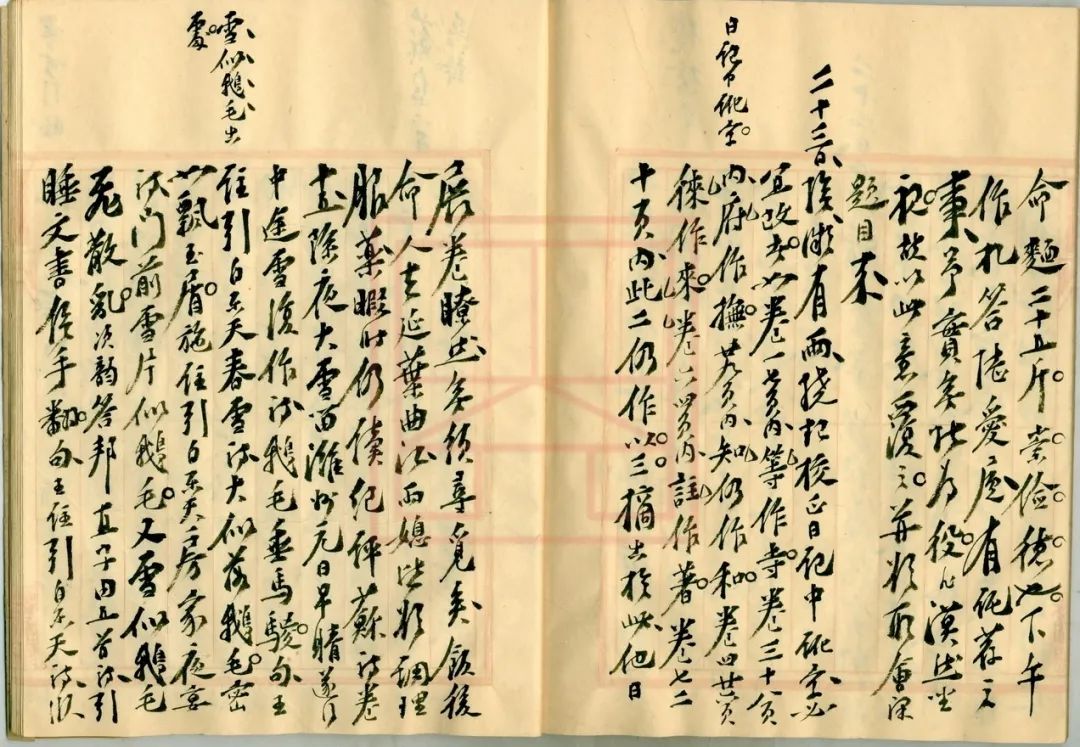 命麵二十五斤。崇儉德也。下午
作札答陸愛廬有託荐之
事。予實無此為役。漠然坐
視。故以此意覆之。并取會課
題目來
日記中訛字。
二十三日、陰微有雨、挍正日記中訛字。必
宜改者。如卷一頁內等作寺。卷三十八頁
內府作撫。頁內知仍作和。卷四廿頁
徠作來。卷六四頁內註作著。卷七二
十頁內此二仍作以三。摘出於此他日
展卷瞭然無煩尋覓矣飯後
命人去延葉曲江兩媳皆調理
服藥暇時仍續紀評蘇詩卷
五除夜大雪留濰州元日早晴遂行
中途雪復作詩鵝毛垂馬騣句王
註引白樂天春雪詩大似落鵝毛。密
如飄玉屑。施註引白樂天家夜宴
詩門前雪片似鵝毛。又雪似鵝毛
飛散亂。次韻答邦直子由五首詩引
睡文書信手翻。句王註引白樂天詩
雪似鵝毛出
處。